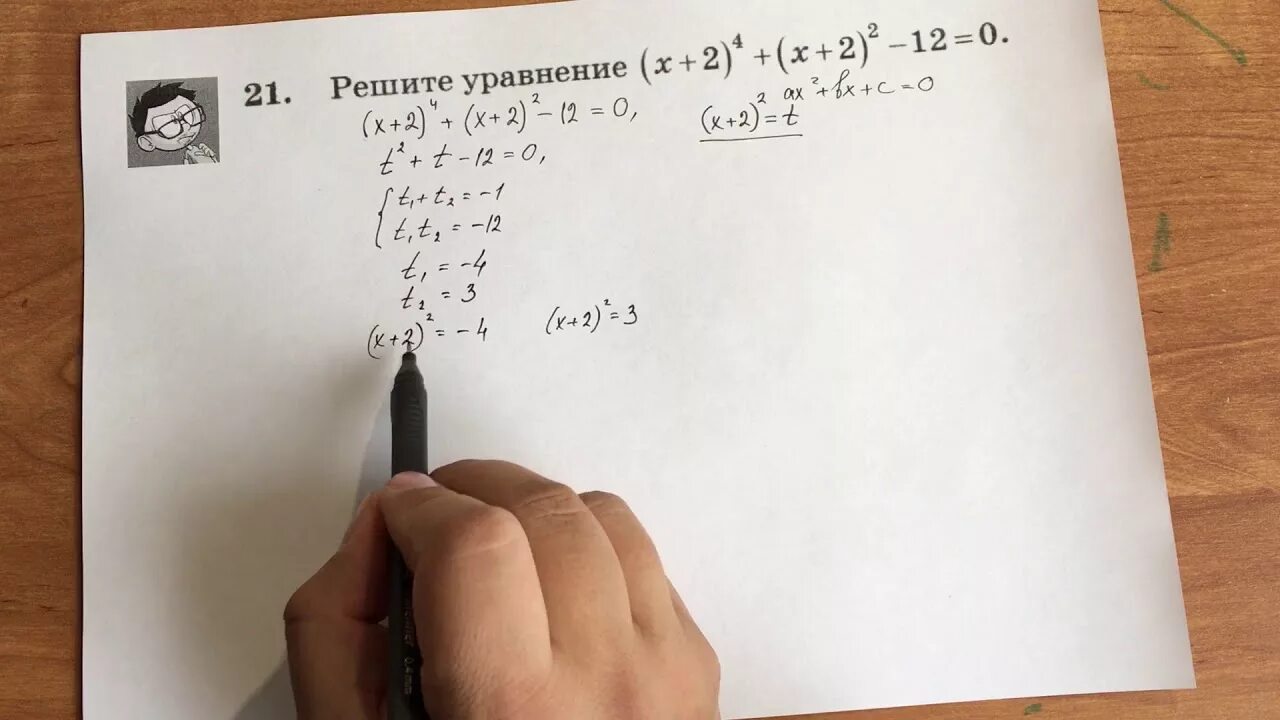 21. Решите уравнение (x+2)⁴+(x+2)²−12=0.
(x+2)⁴+(x+2)²−12=0,
ax²+bx+c=0
(x+2)²=t
t²+t−12=0,
{t₁+t₂=−1
t₁t₂=−12
t₁=−4
t₂=3
(x+2)²=−4 (x+2)²=3